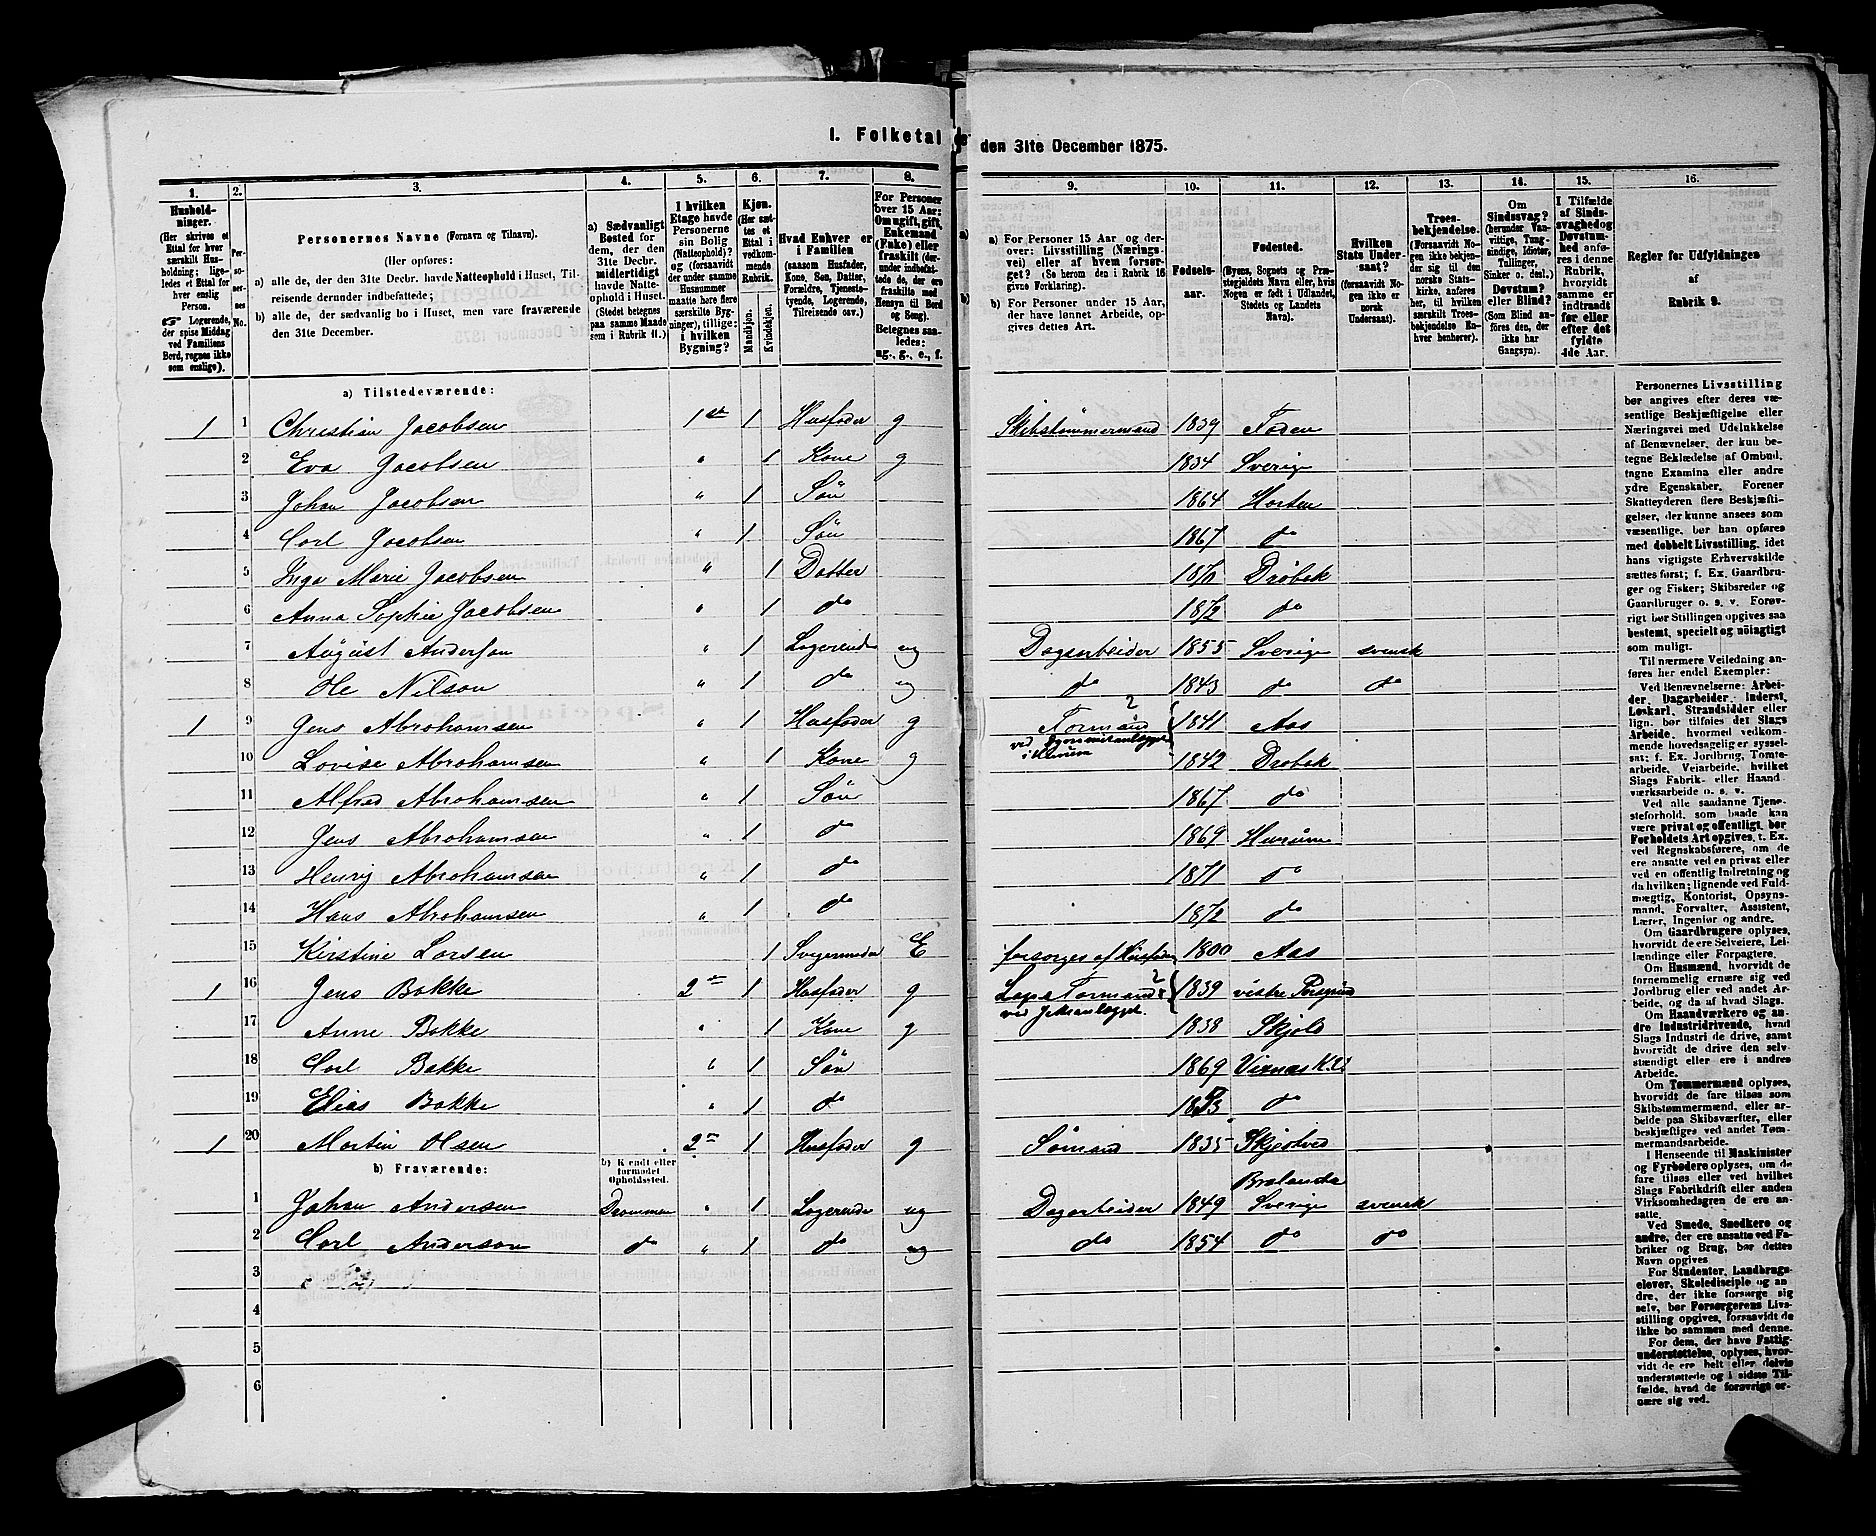 I. Folketal
den 31te December 1875.
1. 2. 3. 4. 5. 6. 7. 8. 9. 10. 11. 12. 13. 14. 15. 16.
Hushold-
ninger.
(Her skrives et
Ettal for hver
særskilt Hus-
holdning; lige-
ledes et Ettal for
hver enslig
Person.
☞ Logerende,
der spise Middag
ved Familiens
Bord, regnes ikke
som enslige).
Per-
so-
ner-
nes
No.
Personernes Navne (Fornavn og Tilnavn).
(Her opføres:
a) alle de, der den 31te Decbr. havde Natteophold i Huset, Til-
reisende derunder indbefattede;
b) alle de, der sædvanlig bo i Huset, men vare fraværende
den 31te December.
a) Sædvanligt
Bosted for
dem, der den
31te Decbr.
midlertidigt
havde Natte-
ophold i Huset.
(Stedet betegnes
paa samme Maade
som i Rubrik 11.)
I hvilken
Etage havde
Personerne
sin Bolig
(Natteophold)?
og (forsaavidt
der under samme
Husnummer
maatte høre flere
særskilte Byg-
ninger), tillige:
i hvilken
Bygning?
Kjøn.
(Her sæt-
tes et
Ettal i
vedkom-
mende
Rubrik.
Mandkjøn.
Kvindekjøn.
Hvad Enhver er
i Familien
(saasom Husfader,
Kone, Søn, Datter,
Forældre, Tjeneste-
tyende, Logerende,
Tilreisende osv.)
For Personer
over 15 Aar:
Om ugift, gift,
Enkemand
(Enke) eller
fraskilt (der-
under indbefat-
tede de, der ere
fraskilte med
Hensyn til Bord
og Seng).
Betegnes saa-
ledes:
ug., g., e., f.
a) For Personer 15 Aar og der-
over: Livsstilling (Nærings-
vei) eller af hvem forsør-
get? (Se herom den i Rubrik 16
givne Forklaring).
b) For Personer under 15 Aar,
der have lønnet Arbeide, op-
gives dettes Art.
Fødsels-
aar.
Fødested.
(Byens, Sognets og Præ-
stegjeldets Navn eller, hvis
Nogen er født i Udlandet,
Stedets og Landets
Navn).
Hvilken
Stats Under-
saat?
(forsaavidt No-
gen ikke er
norsk
Undersaat).
Troes-
bekjendelse.
(Forsaavidt No-
gen ikke bekjen-
der sig til den
norske Stats-
kirke, anføres
her, til hvilken
særskilt Troes-
bekjendelse En-
hver henhører).
Om
Sindssvag?
(herunder Van-
vittige, Tung-
sindige, Idioter,
Tullinger,
Sinker o. desl.)
Døvstum?
eller Blind?
(Som Blind an-
føres den, der
ikke har
Gangsyn).
I Tilfælde
af Sinds-
svaghed og
Døvstum-
hed anfø-
res i denne
Rubrik,
hvorvidt
samme er
indtraadt
før eller
efter det
fyldte
4de Aar.
Regler for Udfyldningen
af
Rubrik 9.
a) Tilstedeværende:
1 1 Christian Jacobsen 1st 1 Husfader g Skibstømmermand 1839
2 Eva Jacobsen " 1 Kone g 1834 Sverige
3 Johan Jacobsen " 1 Søn 1864 Horten
4 Carl Jacobsen " 1 Søn 1867 do
5 Inga Marie Jacobsen " 1 Datter Drøbak
6 Anna Sophie Jacobsen " 1 do 1872 do
7 August Anderson " 1 Logerende ug Dagarbeider 1855 Sverige svensk
8 Ole Nilson " 1 do ug do 1843 do do
1 9 Jens Abrahamsen " 1 Husfader g Formand 1841 Aas
10 Lovise Abrahamsen " 1 Kone g 1842 Drøbak
11 Alfred Abrahamsen " 1 Søn 1867 do
12 Jens Abrahamsen " 1 do 1869 Hurum
13 Henrig Abrahamsen " 1 do 1871 do
14 Hans Abrahamsen " 1 do 1872 do
15 Kirstine Larsen 1 Svigermoder E forsørges af Husfader 1800 Aas
1 16 Jens Bakke 2 1 Husfader g Formand 1839 vistre Porsgrund
17 Anne Bakke " 1 Kone g 1838 Skjold
18 Carl Bakke " 1 Søn 1869
19 Elias Bakke " 1 do do
1 20 Martin Olsen 2 1 Husfader g Sømand 1835
b) Fraværende:
b) Kendt eller
formodet
Opholdssted.
1 Johan Andersen Drammen " 1 Logerende ug Dagarbeider 1849 Sverige svensk
2 Carl Anderson do " 1 do ug do 1854 do do
3
4
5
6
Personernes Livsstilling
bør angives efter deres væ-
sentlige Beskjæftigelse eller
Næringsvei med Udelukkelse
af Benævnelser, der kun be-
tegne Beklædelse af Ombud,
tagne Examina eller andre
ydre Egenskaber. Forener
Skatteyderen flere Beskjæfti-
gelser, der kunne ansees som
væsentlige, bør han opføres
med dobbelt Livsstilling, idet
hans vigtigste Erhvervskilde
sættes først; f. Ex. Gaardbru-
ger og Fisker; Skibsreder og
Gaardbruger o. s. v. Forøv-
rigt bør Stillingen opgives saa
bestemt, specielt og nøiagtigt
som muligt.
Til nærmere Veiledning an-
føres her endel Exempler:
Ved Benævnelserne: Arbei-
der, Dagarbeider, Inderst,
Løskarl, Strandsidder eller
lign. bør tilføies det Slags
Arbeide, hvormed vedkom-
mende hovedsagelig er syssel-
sat; f. Ex. Jordbrug, Tomte-
arbeide, Veiarbeide, hvilket
Slags Fabrik- eller Haand-
værksarbeide o. s. v.
Ved alle saadanne Tjene-
steforhold, som baade kan
være privat og offentligt, bør
Forholdets Art opgives, t. Ex.
ved Regnskabsførere, om de
ere ansatte ved en privat eller
ved en offentlig Indretning og
da hvilken; lignende ved Fuld-
mægtig, Kontorist, Opsyns-
mand, Forvalter, Assistent,
Lærer, Ingeniør og andre.
Om Gaardbrugere oplyses,
hvorvidt de ere Selveiere, Lei-
lændinge eller Forpagtere.
Om Husmænd, hvorvidt de
fornemmelig ernære sig ved
Jordbrug eller ved andet Ar-
beide, og da af hvad Slags.
Om Haandværkere og an-
dre Industridrivende, hvad
Slags Industri de drive, samt
hvorvidt de drive den selv-
stændigt eller ere i andres
Arbeide.
Om Tømmermænd oplyses,
hvorvidt de fare tilsøs som
Skibstømmermænd, eller ar-
beide paa Skibsværfter, eller
beskjæftiges ved andet Tøm-
mermandsarbeide.
I Henseende til Maskinister
og Fyrbødere oplyses, om de
fare tilsøs eller ved hvilket
Slags Fabrikdrift eller anden
Virksomhedsgren de ere an-
satte.
Ved Smede, Snedkere og
andre, der ere ansatte ved Fa-
briker og Brug, bør dettes
Navn opgives.
For Studenter, Landbrugs-
elever, Skoledisciple og an-
dre, der ikke forsørge sig
selv, bør Forsørgerens Livs-
stilling opgives, forsaavidt de
ikke bo sammen med denne.
For dem, der have Fattig-
understøttelse, oplyses, hvor-
vidt de ere helt eller delvis
understøttede og i sidste Til-
fælde, hvad de forøvrigt er-
nære sig ved.